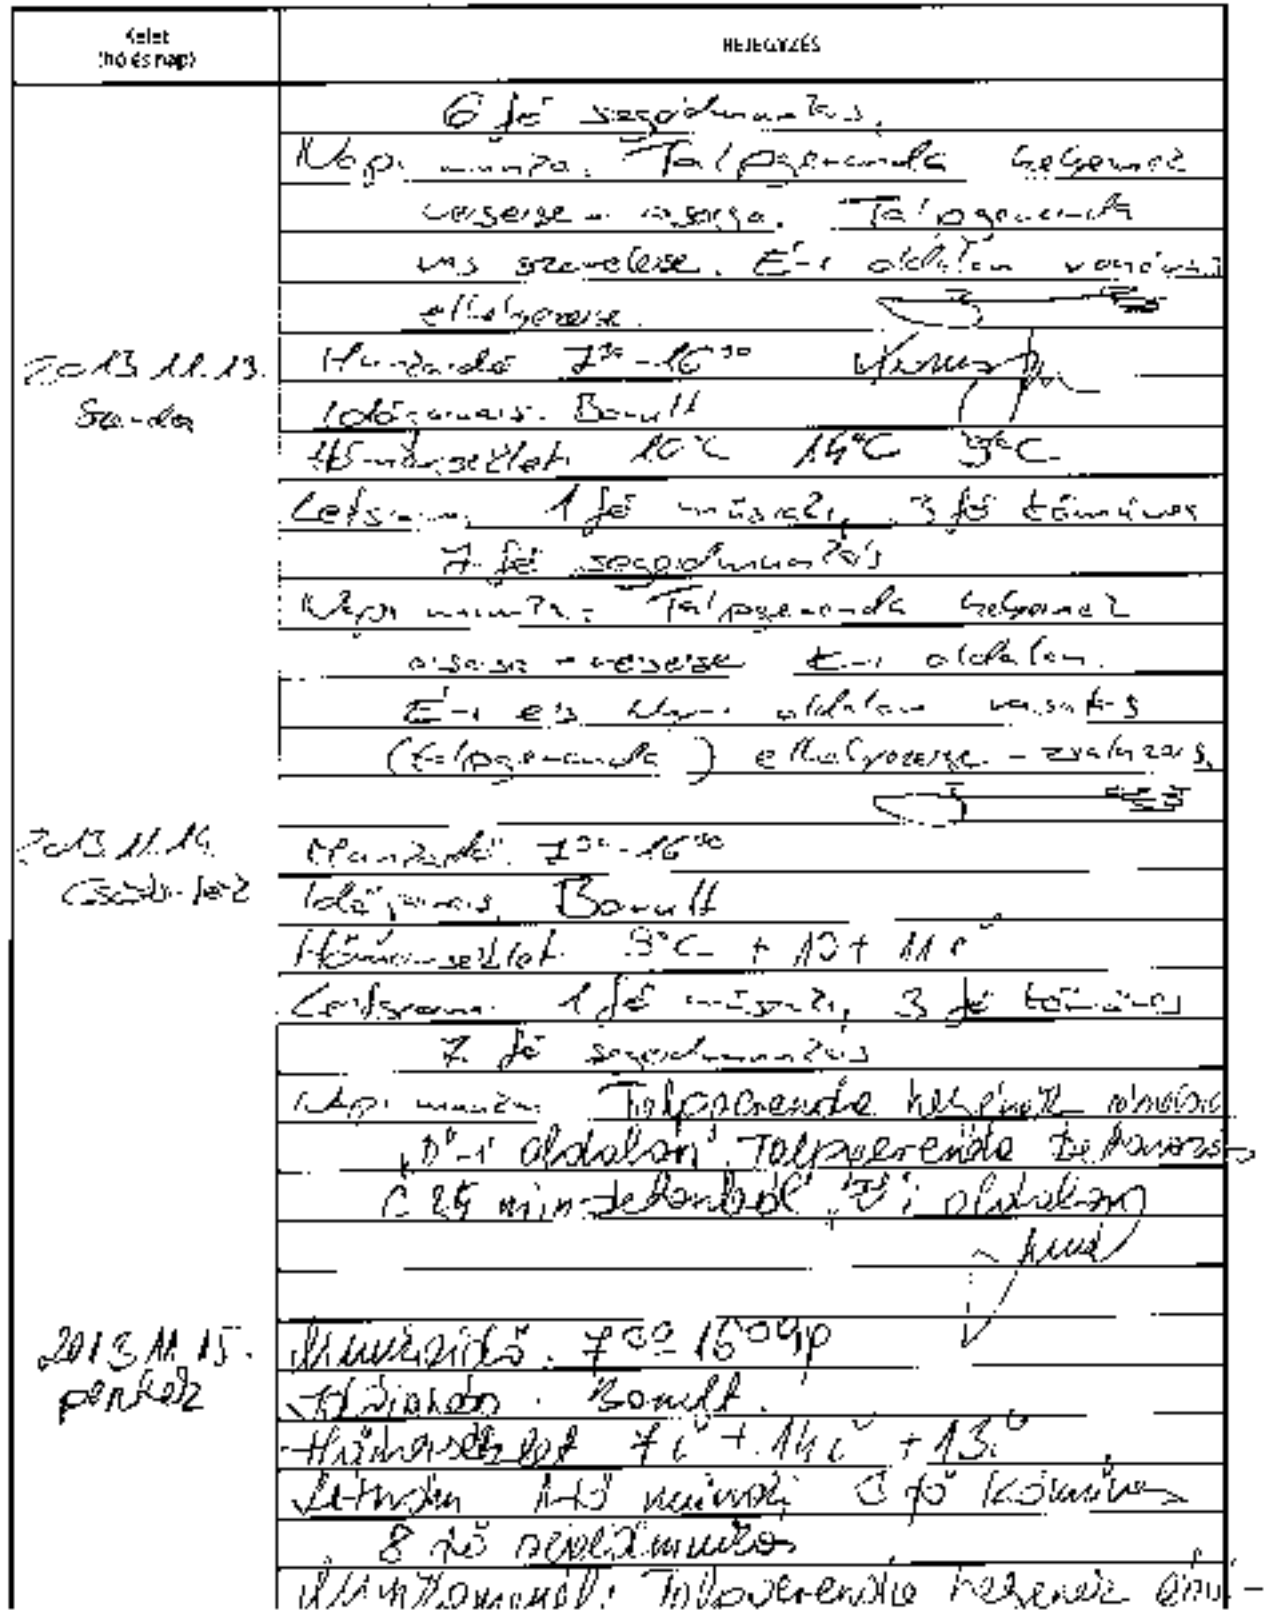 Kelet
(hó és nap)
BEJEGYZÉS
6 fő segédmunkás,
Napi munka: Talpgerenda helyének
vésése - ásása. Talpgerenda
vas szerelése. É-i oldalon
elhelyezése.
2013.11.13.
Szerda
Munkaidő 7³⁰-16³⁰
Időjárás: Borult
Hőmérséklet: 10°C 14°C 9°C
Létszám: 1 fő műszaki, 3 fő kőműves
7 fő segédmunkás
Napi munka: Talpgerenda helyének
ásása - vésése É-i oldalon.
É-i és oldalon
(talpgerenda) elhelyezése - zsaluzás,
2013.11.14.
Csütörtök
Munkaidő: 7³⁰-16³⁰
Időjárás: Borult
Hőmérséklet: 9°C + 10 + 11 c°
Létszám: 1 fő műszaki, 3 fő kőműves
7 fő segédmunkás
Napi munka: Talpgerenda helyének
"D"-i oldalon. Talpgerenda betonozás
C 25 min. betonból oldalon
2013.11.15.
péntek
Munkaidő: 7⁰⁰ 16⁰⁰ óráig
Időjárás: Borult.
Hőmérséklet 7 c° + 14 c° + 13 c°
Létszám 1 fő műszaki 3 fő kőműves
8 fő segédmunkás
Talpgerenda helyének